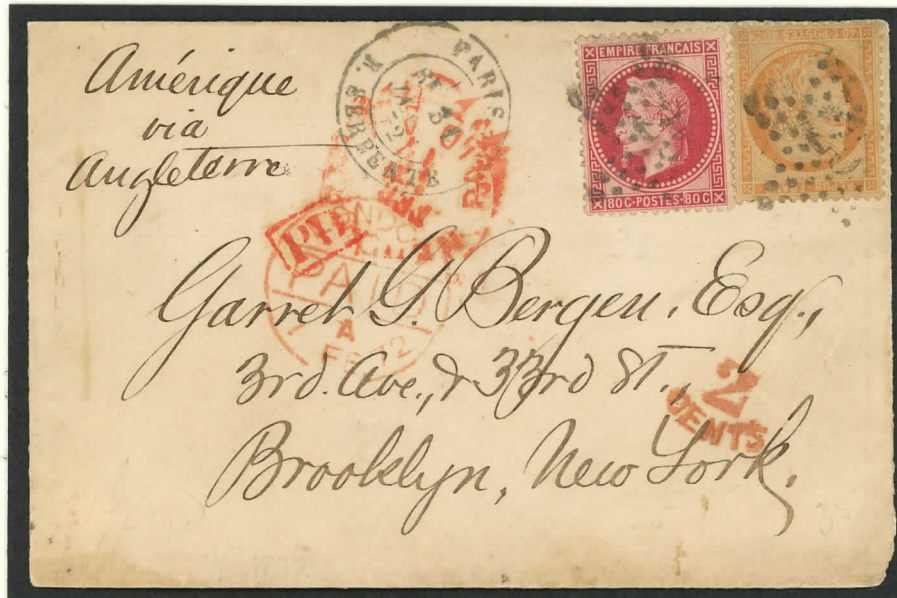 Amérique
via
Angleterre
PARIS
R. SERPENTE
EMPIRE FRANÇAIS
80 C·POSTES·80 C
PAID
A
Garret G. Bergen, Esq.,
3rd. Ave., & 33rd St.,
Brooklyn, New York.
2
CENTS